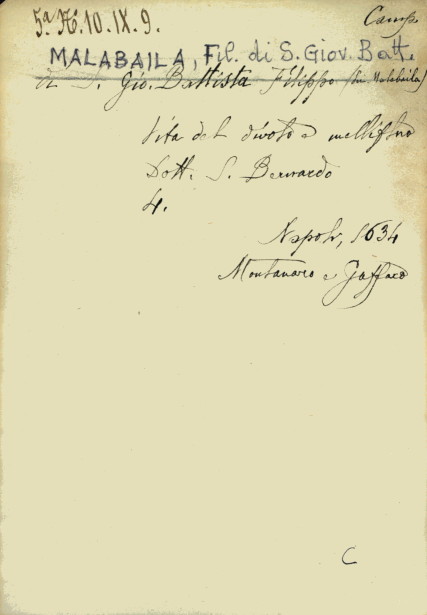 5.ª A.10.IX.9.
Camp.
MALABAILA, Fil. di S. Giov. Batt.
di S. Gio. Battista Filippo (in Malabaila)
Vita del divoto e mellifluo
Dott. S. Bernardo
4.
Napoli, 1634
Montanaro e Jaffaro
C